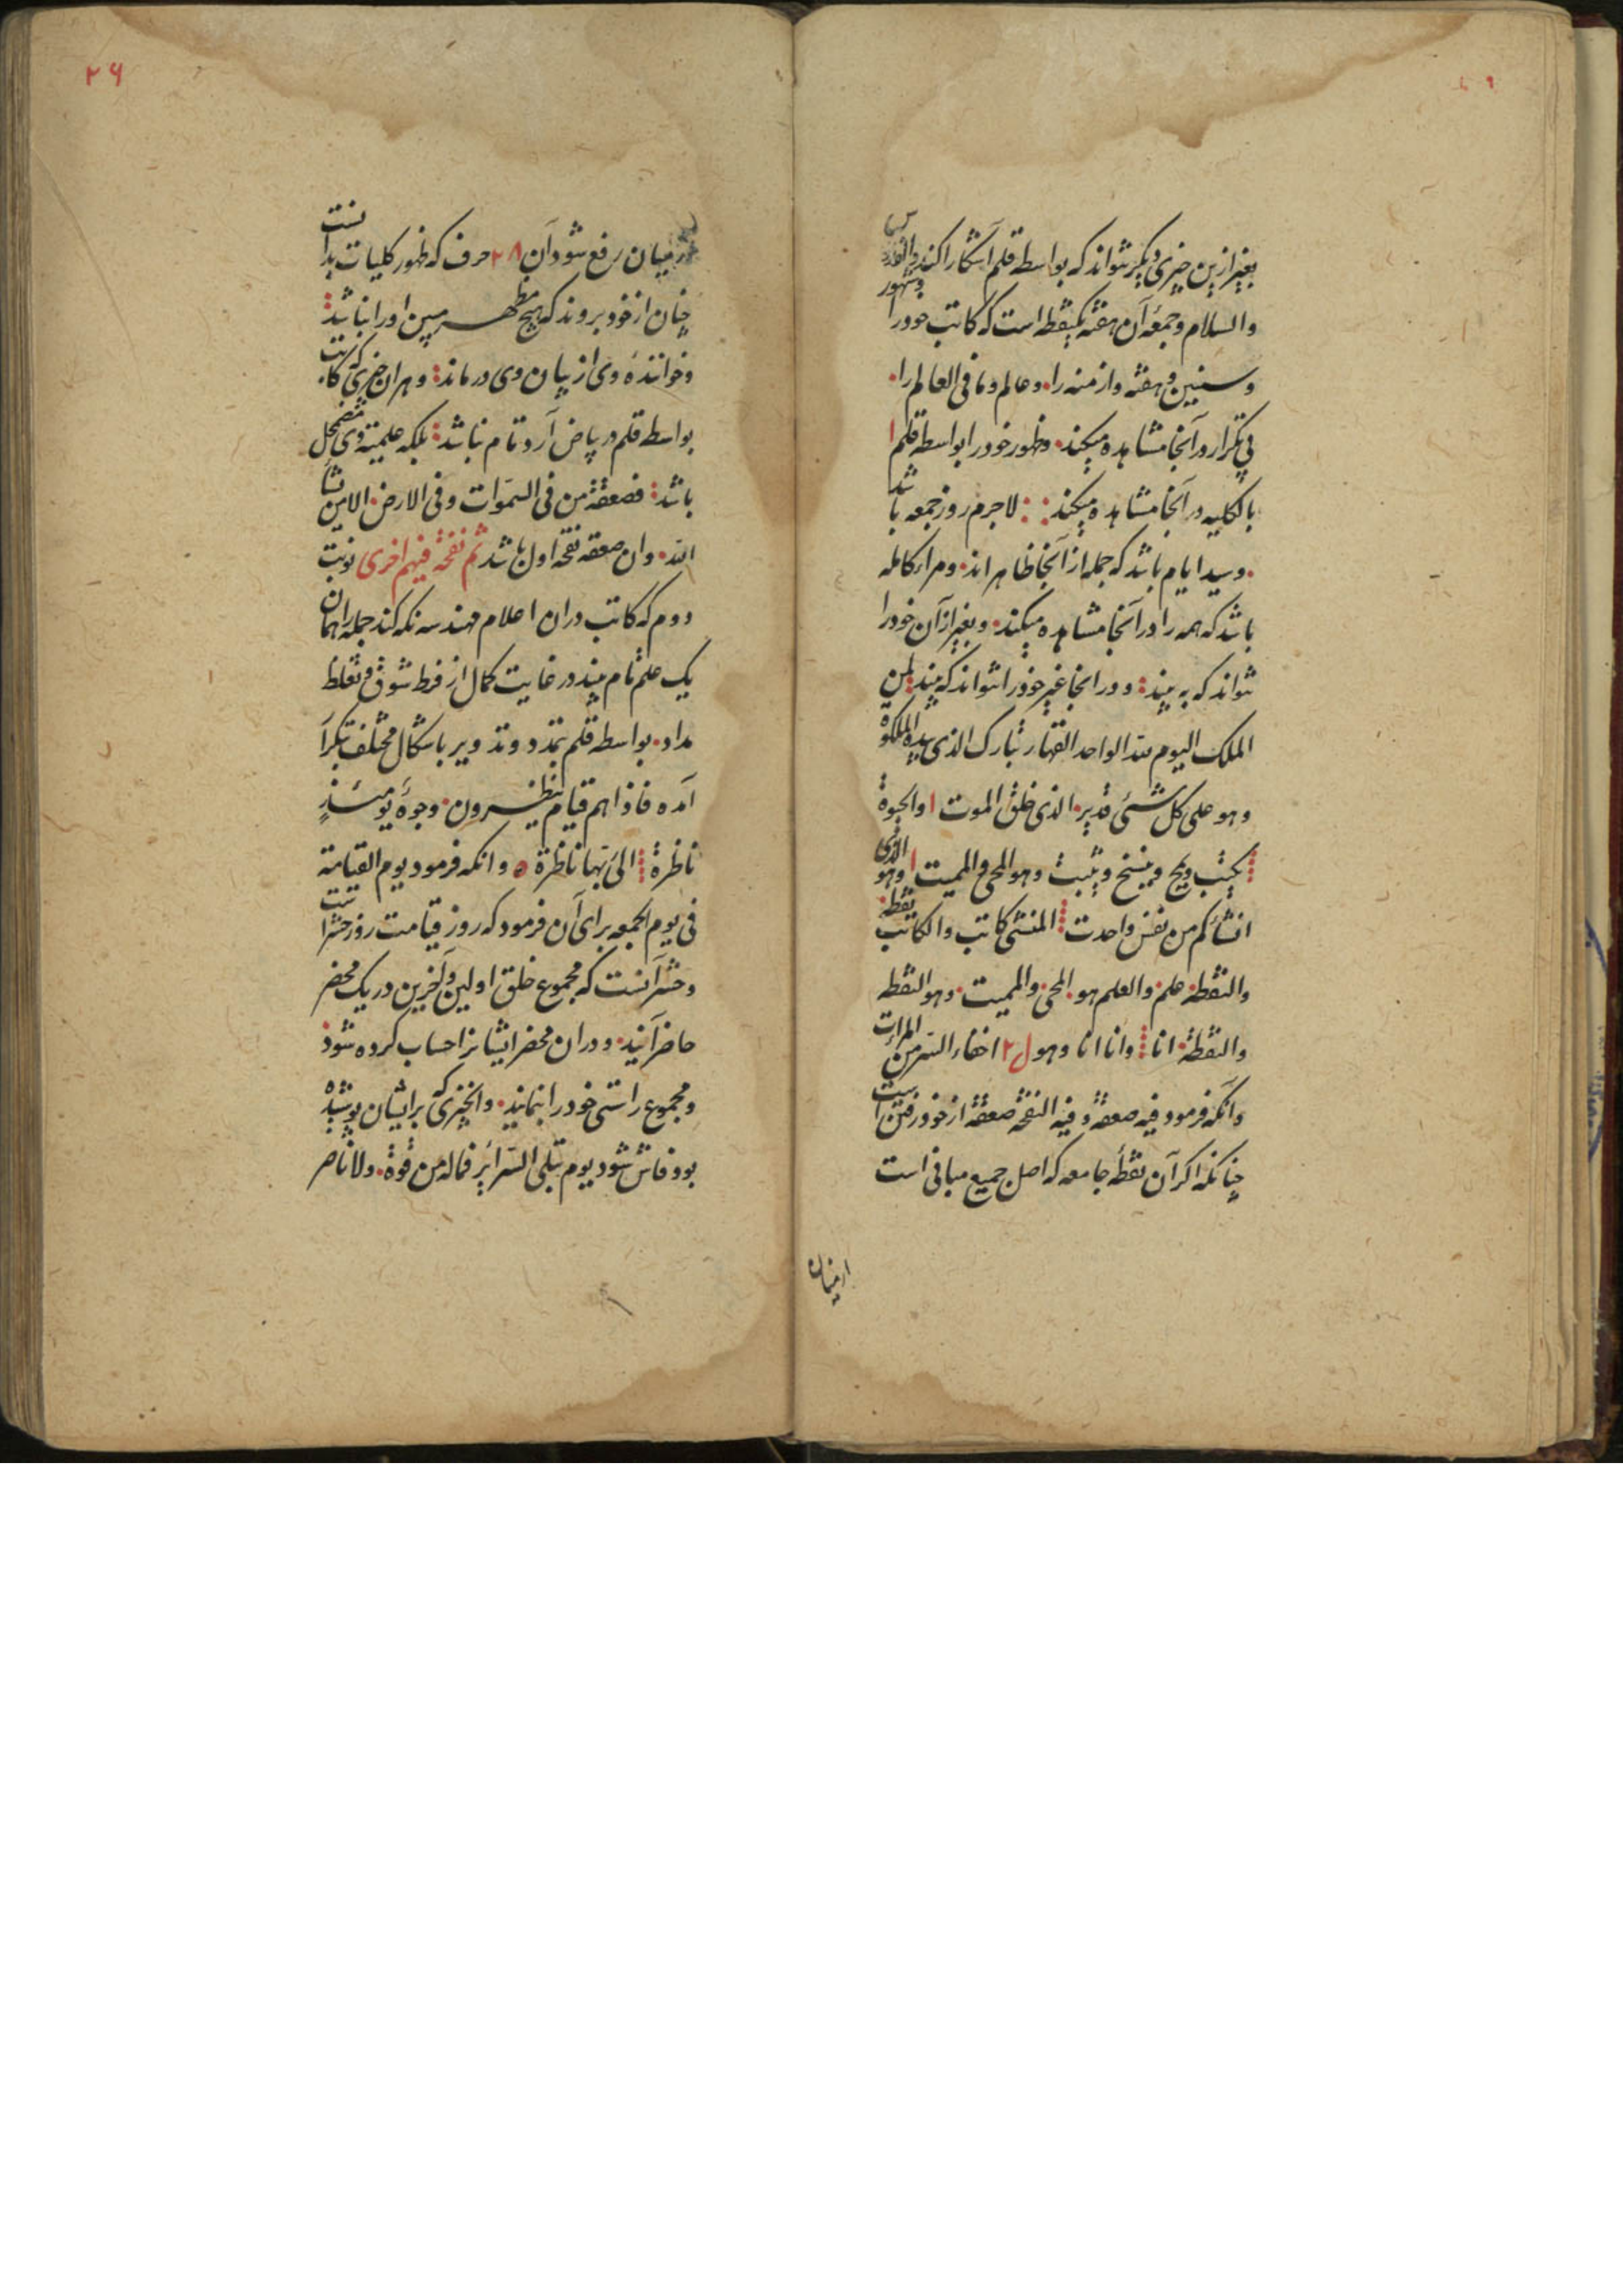 بغیر ازین چیزی دیگر نتواند که بواسطه قلم آشکارا کند فی القدس
والسلام وجمعۀ آن هفته یکنقطه است که کاتب خود را وشهور
وسنین و هفته وازمنه را وعالم وما فی العالم را
فی تکرار در آنجا مشاهده میکند وظهور خود را بواسطه قلم
بالکلیه در آنجا مشاهده میکند لاجرم روز جمعه باشد
وسید ایام باشد که جمله از آنجا ظاهراند ومراۀ کامله
باشد که همه را در آنجا مشاهده میکند وبغیر از آن خود را
نتواند که به بیند ودر انجا غیر خود را نتواند که بیند لمن
الملک الیوم لله الواحد القهار تبارک الذی بیده الملکوة
وهو علی کل شئ قدیر الذی خلق الموت والحیوة
یکتب ویمح وینسخ ویثبت وهو المحی والممیت وهو الذی
انشائکم من نفس واحدت المنشی کاتب والکاتب نقطه
والنقطه علم والعلم هو المحی والممیت وهو النقطه
والنقطة انا وانا انا وهو ل ٢ اخفاء السر من المرات
وآنکه فرمود فیه صعقة وفیه النفخه صعقة از خود رفتن است
چنانکه اکر آن نقطۀ جامعه که اصل جمیع مبانی است
از میان
از میان رفع شود آن ٢٨ حرف که ظهور کلیات بدانست
چنان از خود بروند که هیچ مظهر مبین او را نباشد
وخوانندۀ وی از بیان وی درماند وهر ان چیزی که کاتب
بواسطه قلم در بیاض آرد تمام نباشد بلکه علمیتۀ وی مضمحل
باشد فصعقة من فی السموات وفی الارض الا من نشاء
الله وان صعقه نفخه اول باشد ثم نفخة فیهم اخری نوبت
دوم که کاتب دران اعلام مهندسه نکه کند جمله را همان
یک علم تام بیند در غایت کمال از فرط شوق و تغلظ
مداد بواسطه قلم بتمدد وتدویر باشکال مختلف بتکرار
آمده فاذاهم قیام ینظرون وجوۀ یومئذٍ
ناظرة الی ربها ناظرة وانکه فرمود یوم القیامة
فی یوم الجمعه برای آن فرمود که روز قیامت روز حشرا ست
وحشر آنست که مجموع خلق اولین وآخرین در یک محضر
حاضر آیند ودران محضر ایشانرا حساب کرده شود
ومجموع راستی خود را بنمایند وانچیزی که بر ایشان پوشیده
بود فاش شود یوم تبلی السرائر فماله من قوة ولا ناصر
٢۶